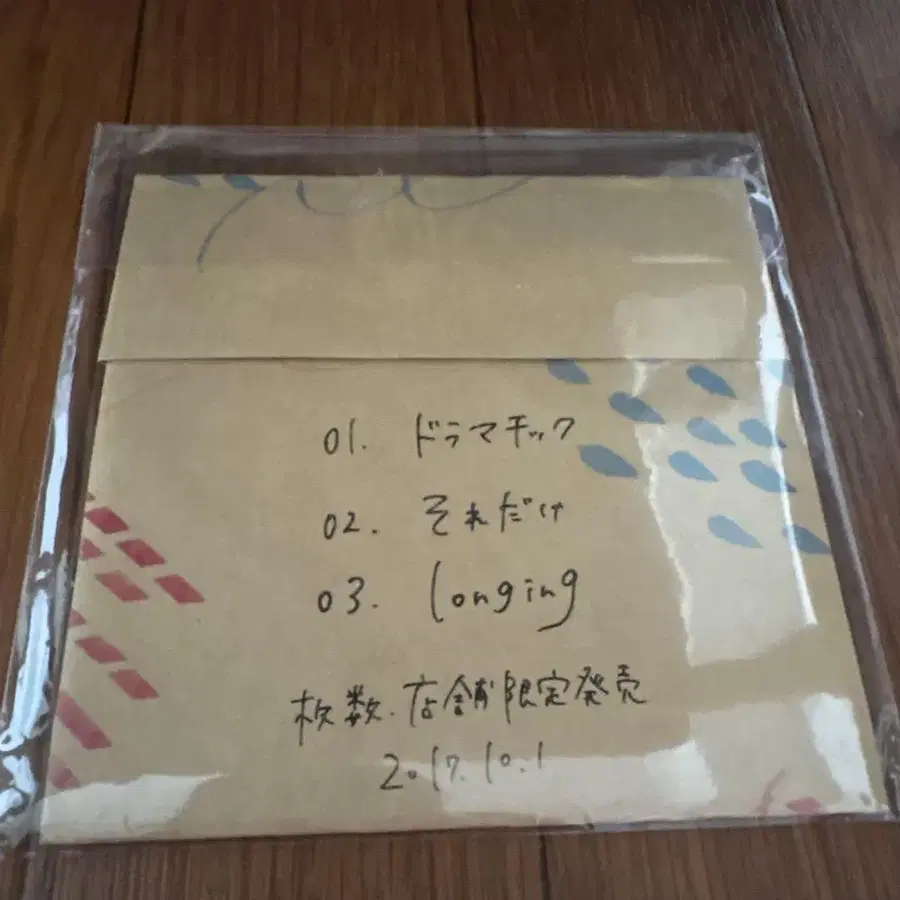 01. ドラマチック
02. それだけ
03. longing
枚数.店舗限定発売
2017.10.1